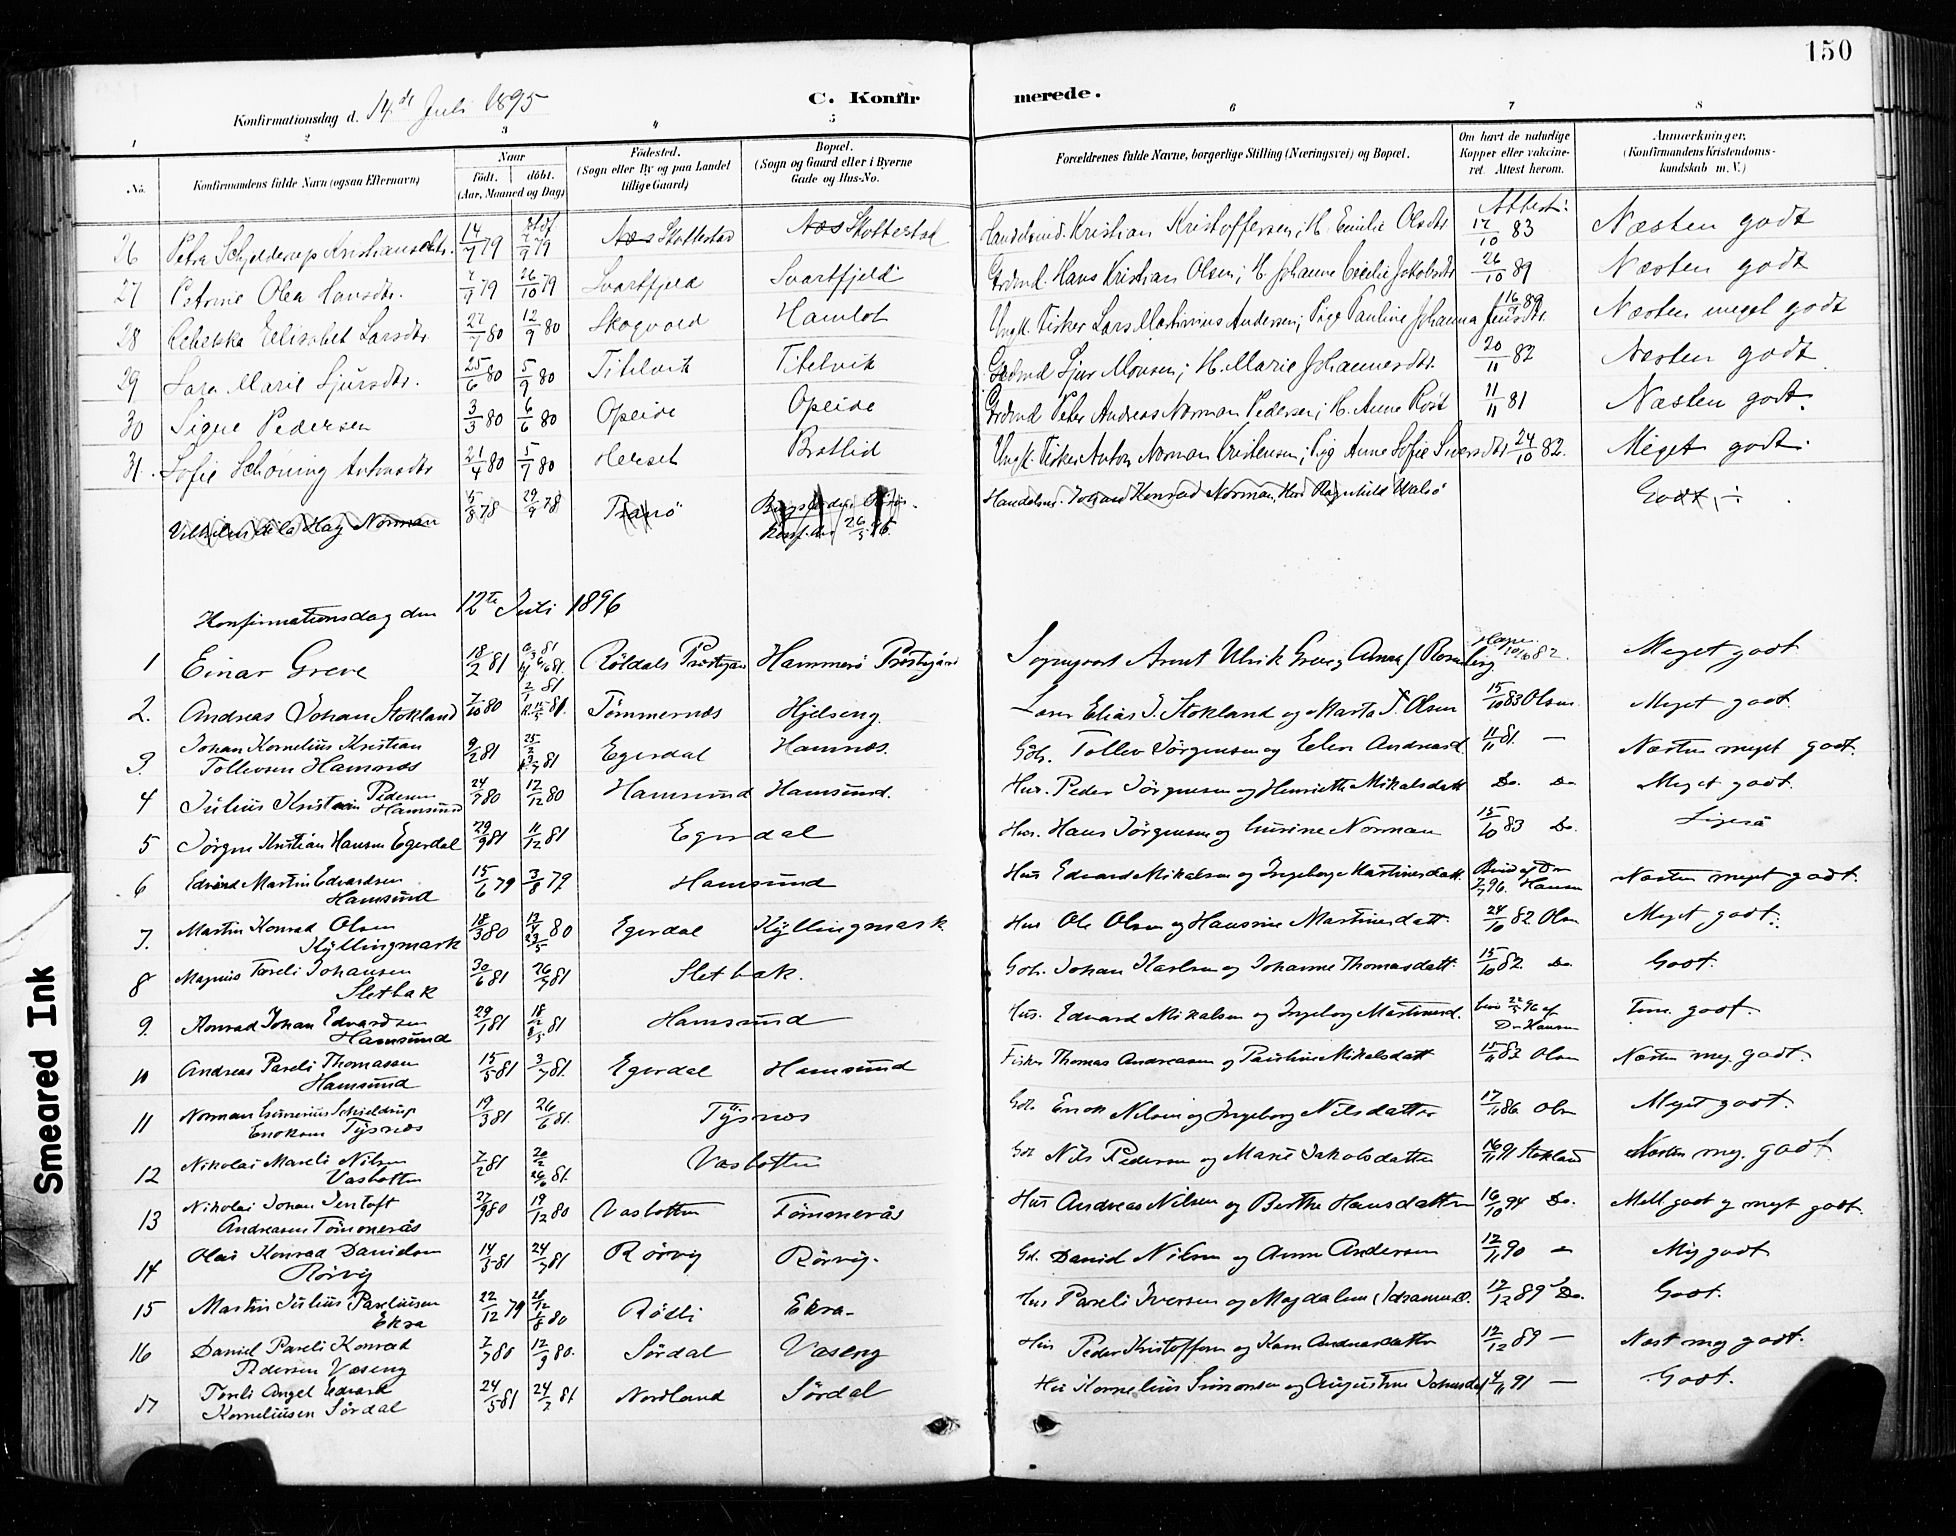 150
Konfirmationsdag d. 14. de Juli 1895
C. Konfirmerede.
1 2 3 4 5 6 7 8
No.
Konfirmandens fulde Navn (ogsaa Efternavn)
Naar
født. døbt.
(Aar, Maaned og Dag)
Fødested.
(Sogn eller By og paa Landet tillige Gaard)
Bopæl.
(Sogn og Gaard eller i Byerne Gade og Hus-No.
Forældrenes fulde Navne, borgerlige Stilling (Næringsvei) og Bopæl.
Om havt de naturlige Kopper eller vakcineret. Attest herom.
Anmærkninger.
(Konfirmandens Kristendomskundskab m. V.)
Attest:
26 Petra Schjelderup Kristiansdtr. 14/7 79 7/9 79 Næs Skottestad Næs Skottestad Handelsmd. Kristian Kristoffersen; H. Emilie Olsdtr 17/10 83 Næsten godt
27 Petrine Olea Hansdtr. 7/9 79 26/10 79 Svartfjeld Svartfjeld Grdmd. Hans Kristian Olsen; H. Johanne Cecilie Jakobsdtr 26/10 89 Næsten godt
28 Rebekka Elisabet Larsdtr 27/7 80 12/9 80 Skogvold Hamlot Ungk. Fisker Lars Martinius Andersen; Pige Pauline Johanna Jensdtr. 16/9 89 Næsten meget godt
29 Sara Marie Sjursdtr. 25/6 80 5/9 80 Tilelvik Tilelvik Grdmd Sjur Monsen; H. Marie Johannesdtr. 20/11 82 Næsten godt
30 Signe Pedersen 3/3 80 6/6 80 Opeide Opeide Grdmd Peter Andreas Norman Pedersen; H. Anne Røst 11/11 81 Næsten godt.
31. Sofie Schøning Antonsdtr 21/4 80 5/9 80 Herset Bratlid Ungk. Fisker Anton Norman Kristensen; Pig Anne Sofie Sivertsdtr 24/10 82. Meget godt.
Vilhelmi de la Hay Norman 5/8 78 29/9 78 Tranö 26/5 95. Handelsm. Konrad Norman, Hust Ragnhild Walsö Godt
Konfirmationsdag den 12te Juli 1896
1 Einar Greve 18/2 81 Röldals Prestegaard Hammerö Prestegård Sogneprest Arnt Ulrik Greve, Anna J Rosenberg 82. Meget godt
2. Andreas Johan Stokland 7/10 80 Tömmernes Hjelseng Lærer Elias J. Stokland og Marta T. Olsen 15/10 83 Olsen. Meget godt
3. Johan Kornelius Kristian Tollevsen Hamnæs 9/2 81 Egerdal Hamnæs. Gdb. Tollev Jörgensen og Elen Andreasd 11/11 81. — Næsten meget godt.
4 Julius Kristian Pedersen Hamsund 24/7 80 12/12 80 Hamsund Hamsund. Hus. Peder Jörgensen og Henriette Mikalsdatt Do. Do Meget godt.
5 Jörgen Kristian Hansen Egerdal 29/9 81 11/12 81 Egerdal Hus. Hans Jörgensen og Gurine Norman 15/10 83 Do. Ligeså
6 Edvard Martin Edvardsen Hamsund 15/6 79 3/8 79 Hamsund Hus Edvard Mikalsen og Ingeborg Martinusdatt. Bevis af Dr Hansen Næsten meget godt.
7. Martin Konrad Olsen Kyllingmark 18/3 80 80 Egerdal Kyllingmark Hus Ole Olsen og Hansine Martinusdatt. 24/10 82 Olsen Meget godt.
8 Magnus Pareli Johansen Sletbak 30/6 81 26/7 81 Sletbak. Gdb. Johan Karlsen og Johanne Thomasdatt. 15/10 82. Do. Godt.
9. Konrad Johan Edvardsen Hamsund 29/1 81 81 Hamsund Hus. Edvard Mikalsen og Ingeborg Martinusd. bevis 22/5 96 af Dr Hansen Tem. godt.
10 Andreas Pareli Thomasen Hamsund 15/5 81 3/7 81. Egerdal Hamsund Fisker Thomas Andreasen og Pauline Mikalsdatt 15/11 82 Olsen Næsten meg. godt.
11 Norman Gunerius Schjeldrup Enoksen Tysnes 19/3 81 26/6 81. Tysnes Gdb. Enok Nilsen og Ingeborg Nilsdatter 17/11 86. Olsen Meget godt.
12 Nikolai Mareli Nilsen Vasbotten 7/2 81 81. Vasbotten Gdb Nils Pedersen og Marie Jakobsdatter 16/11 91 Stokland Næsten meg. godt
13 Nikolai Johan Jentoft Andreasen Tömmerås 27/9 80 19/12 80 Vasbotten Tömmerås Hus Andreas Nilsen og Berthe Hansdatter 16/10 94 Do. Mell. godt og meget godt.
14 Olai Konrad Danielsen Rörvig 14/3 81 24/7 81 Rörvig Rörvig. Gd. Daniel Nilsen og Anne Andersen 12/11 90 — Meg godt
15 Martin Julius Pareliusen Ekra 22/12 79 80 Rödli Ekra. Hus Pareli Iversen og Magdalena Johannesd. 12/12 89 Do. Godt.
16 Daniel Pareli Konrad Pedersen Vaseng 7/7 80 12/9 80. Sördal Vaseng Hus Peder Kristoffersen og Karen Andreasdatter 12/12 89 — Næst meg godt.
17 Pareli Angel Edvark Korneliusen Sördal 24/5 81 24/7 81. Nordland Sördal Hus Kornelius Simonsen og Augustine Johansdat 4/11 91 — Godt.
Smeared Ink